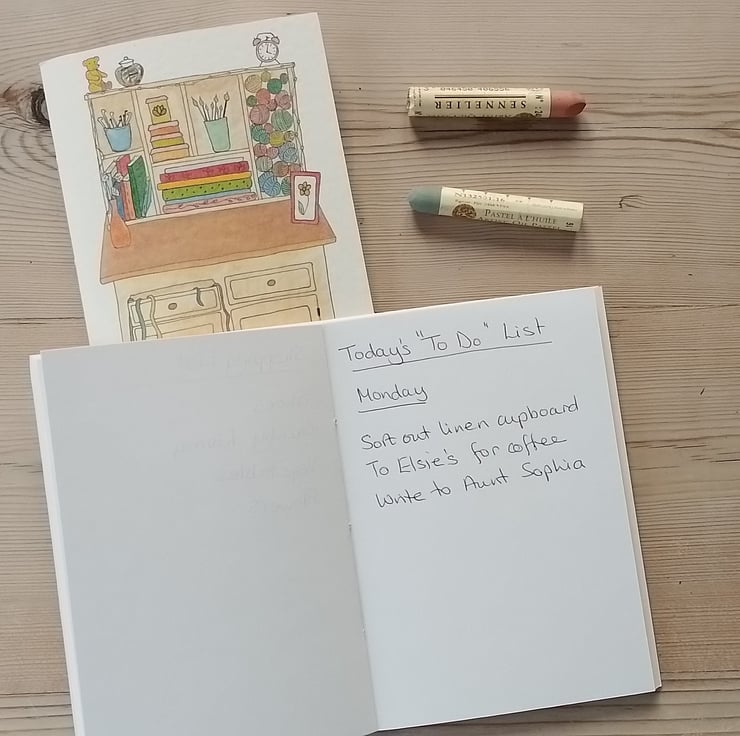 SENNELIER
PASTEL À L'HUILE
Today's "To Do" List
Monday
Sort out linen cupboard
To Elsie's for coffee
Write to Aunt Sophia
Shopping List
Vegetables
Flowers